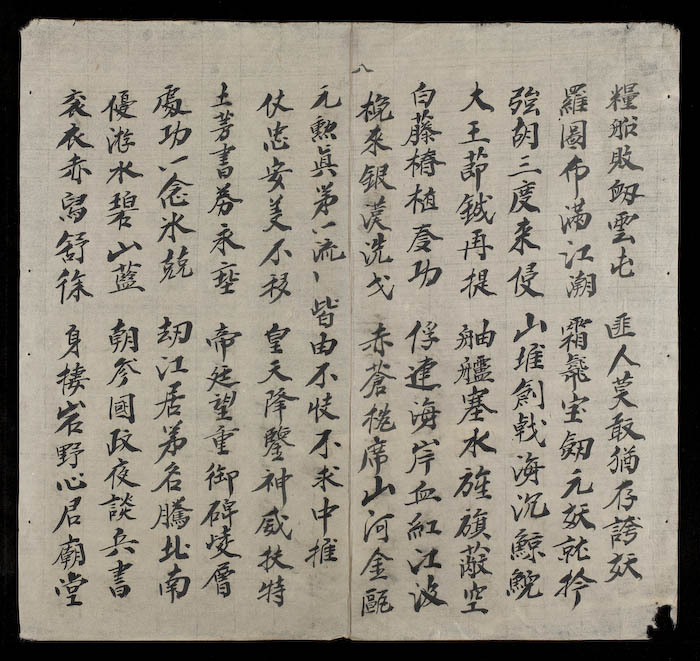 八
糧船敗衂雲屯 匪人莫敢猶存誇妖
羅圖布滿江潮 霜飛宝劔元妖就擒
強胡三度来侵 山堆劍戟海沉鯨鯢
大王節鉞再提 舳艫塞水旌旗蔽空
白藤樁植奏功 俘連海岸血紅江波
挽来銀漢洗戈 赤蒼席山河金甌
元勲眞弟一流 皆由不忮不求中推
仗忠安美不移 皇天降鑒神威扶特
土芳書券永垂 帝廷望重御碑崚層
處功一念氷兢 刼江居弟名騰北南
優游水碧山藍 朝參國政夜談兵書
袞衣赤舄舒徐 身棲岩野心居廟堂